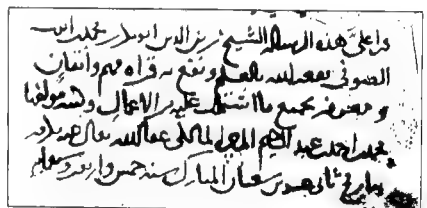 قرا علي هذه الرسالة الشيخ زين الدين ابو بكر
الصوفي نفعه الله بالعلم ونفع به قراة فهم واتقان
ومعرفة بجميع ما اشتملت عليه من الاعمال وكتبه مولفها
محمد بن احمد بن عبد الرحيم المزي المالكي عفا الله تعالى عنه
بتاريخ ثاني عشر شعبان المبارك سنة خمس واربعين وسبعمائة